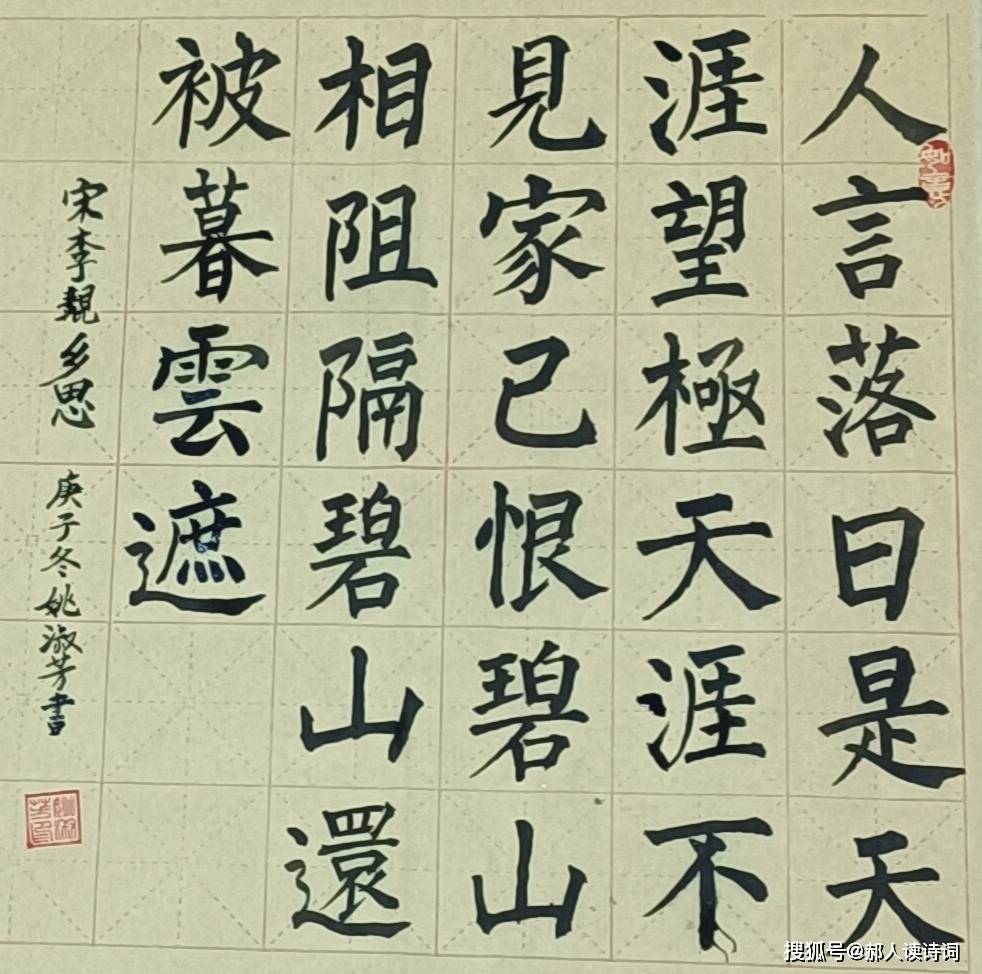 人言落日是天
涯望極天涯不
見家已恨碧山
相阻隔碧山還
被暮雲遮
宋李覯乡思
庚子冬姚淑芳書
搜狐号@郝人读诗词